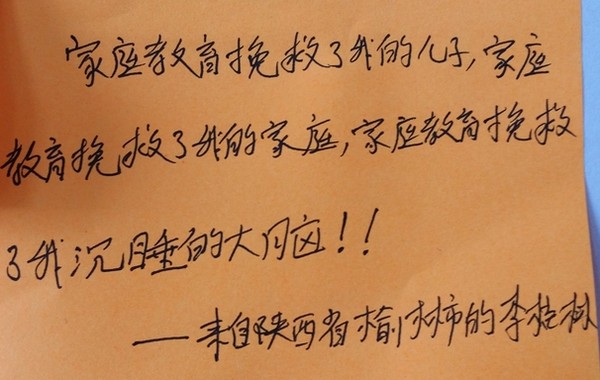 家庭教育挽救了我的儿子,家庭
教育挽救了我的家庭,家庭教育挽救
了我沉睡的大脑!!
——来自陕西省榆林市的李桂林